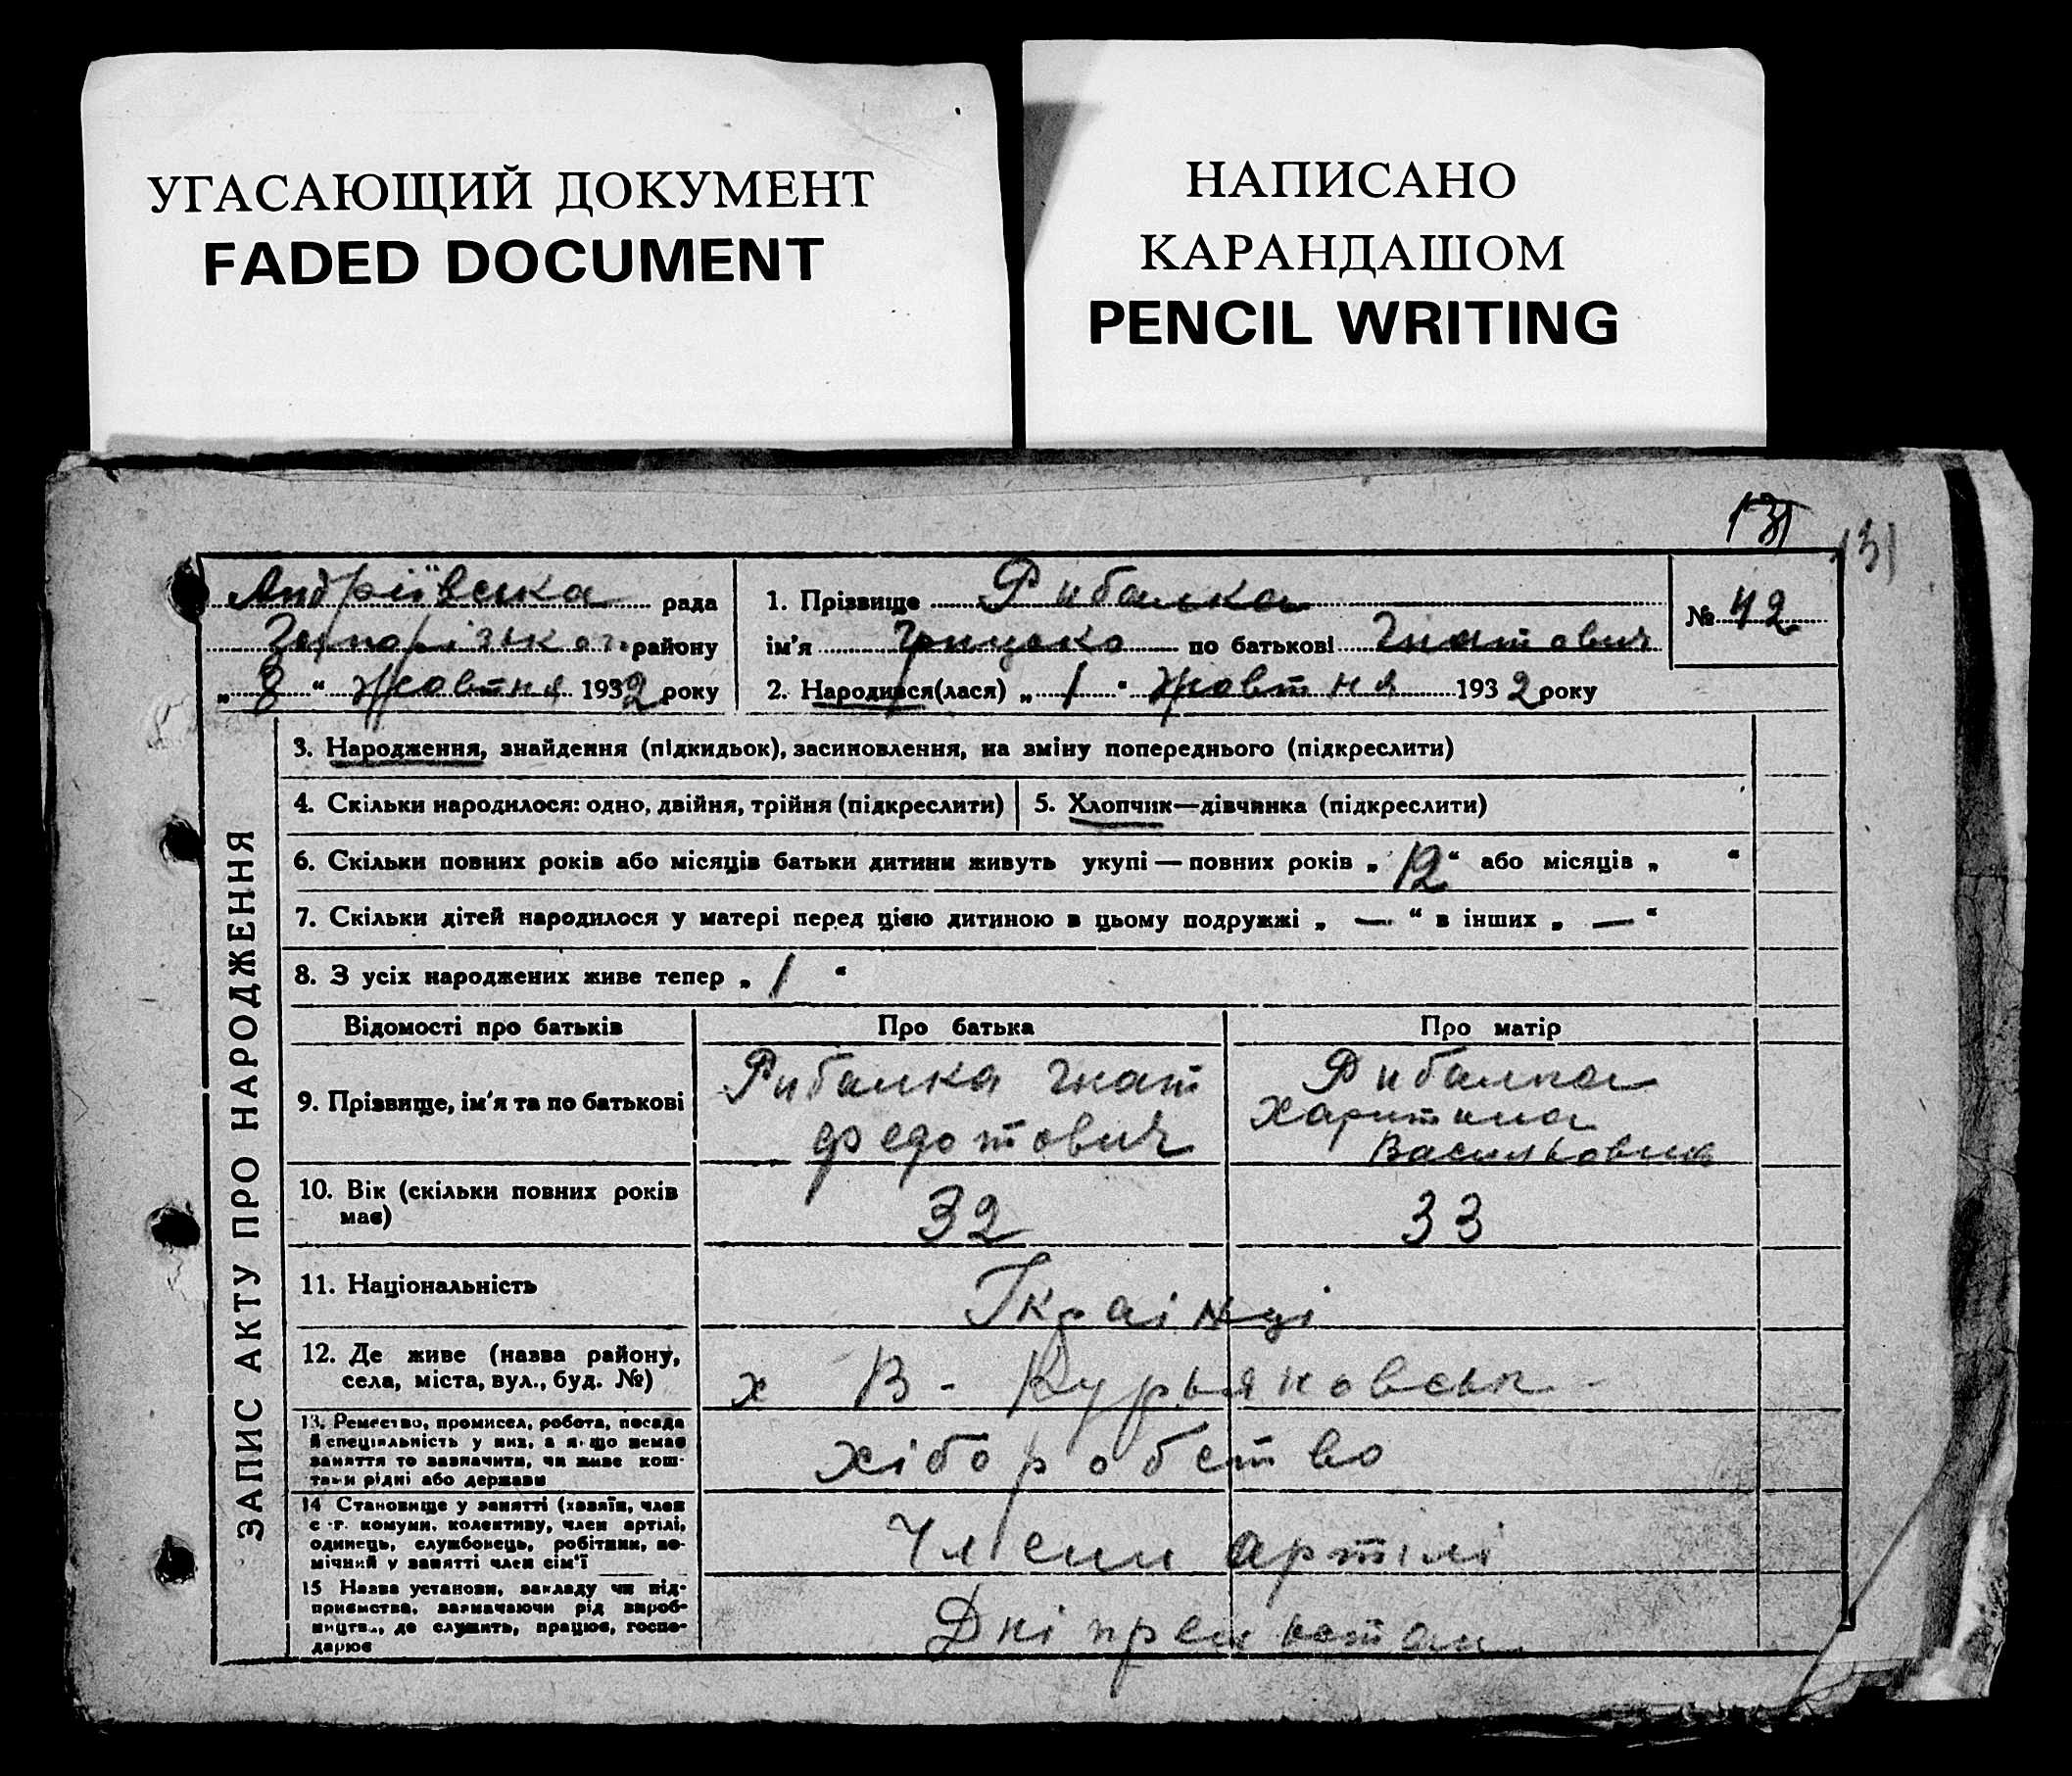 УГАСАЮЩИЙ ДОКУМЕНТ
FADED DOCUMENT
НАПИСАНО
КАРАНДАШОМ
PENCIL WRITING
131 131
Андріївська рада
Запорізького району
„ 8 “ Жовтня 1932 року
1. Прізвище Рибалка
ім'я Грицько по батькові Гнатович
2. Народився(лася) „ 1 “ Жовтня 1932 року
№ 42
ЗАПИС АКТУ ПРО НАРОДЖЕННЯ
3. Народження, знайдення (підкидьок), засиновлення, на зміну попереднього (підкреслити)
4. Скільки народилося: одно, двійня, трійня (підкреслити) 5. Хлопчик—дівчинка (підкреслити)
6. Скільки повних років або місяців батьки дитини живуть укупі — повних років „ 12 “ або місяців „ “
7. Скільки дітей народилося у матері перед цією дитиною в цьому подружжі „ — “ в інших „ — “
8. З усіх народжених живе тепер „ 1 “
Відомості про батьків Про батька Про матір
9. Прізвище, ім'я та по батькові
Рибалка Гнат
Федотович
Рибалка
Харитина
10. Вік (скільки повних років
має)
32 33
11. Національність
Украінці
12. Де живе (назва району,
села, міста, вул., буд. №)
х В - Курьяковськ -
13. Ремество, промисел, робота, посада
й спеціяльність у них, а якщо немає
заняття то зазначити, чи живе кош-
тами рідні або держави
хіборобство
14 Становище у занятті (хазяїн, член
с.-г. комуни, колективу, член артілі,
одинець, службовець, робітник, по-
мічний у занятті член сім'ї
Члени артілі
15 Назва установи, закладу чи під-
приємства, зазначаючи рід вироб-
ництва, де служить, працює, госпо-
дарює